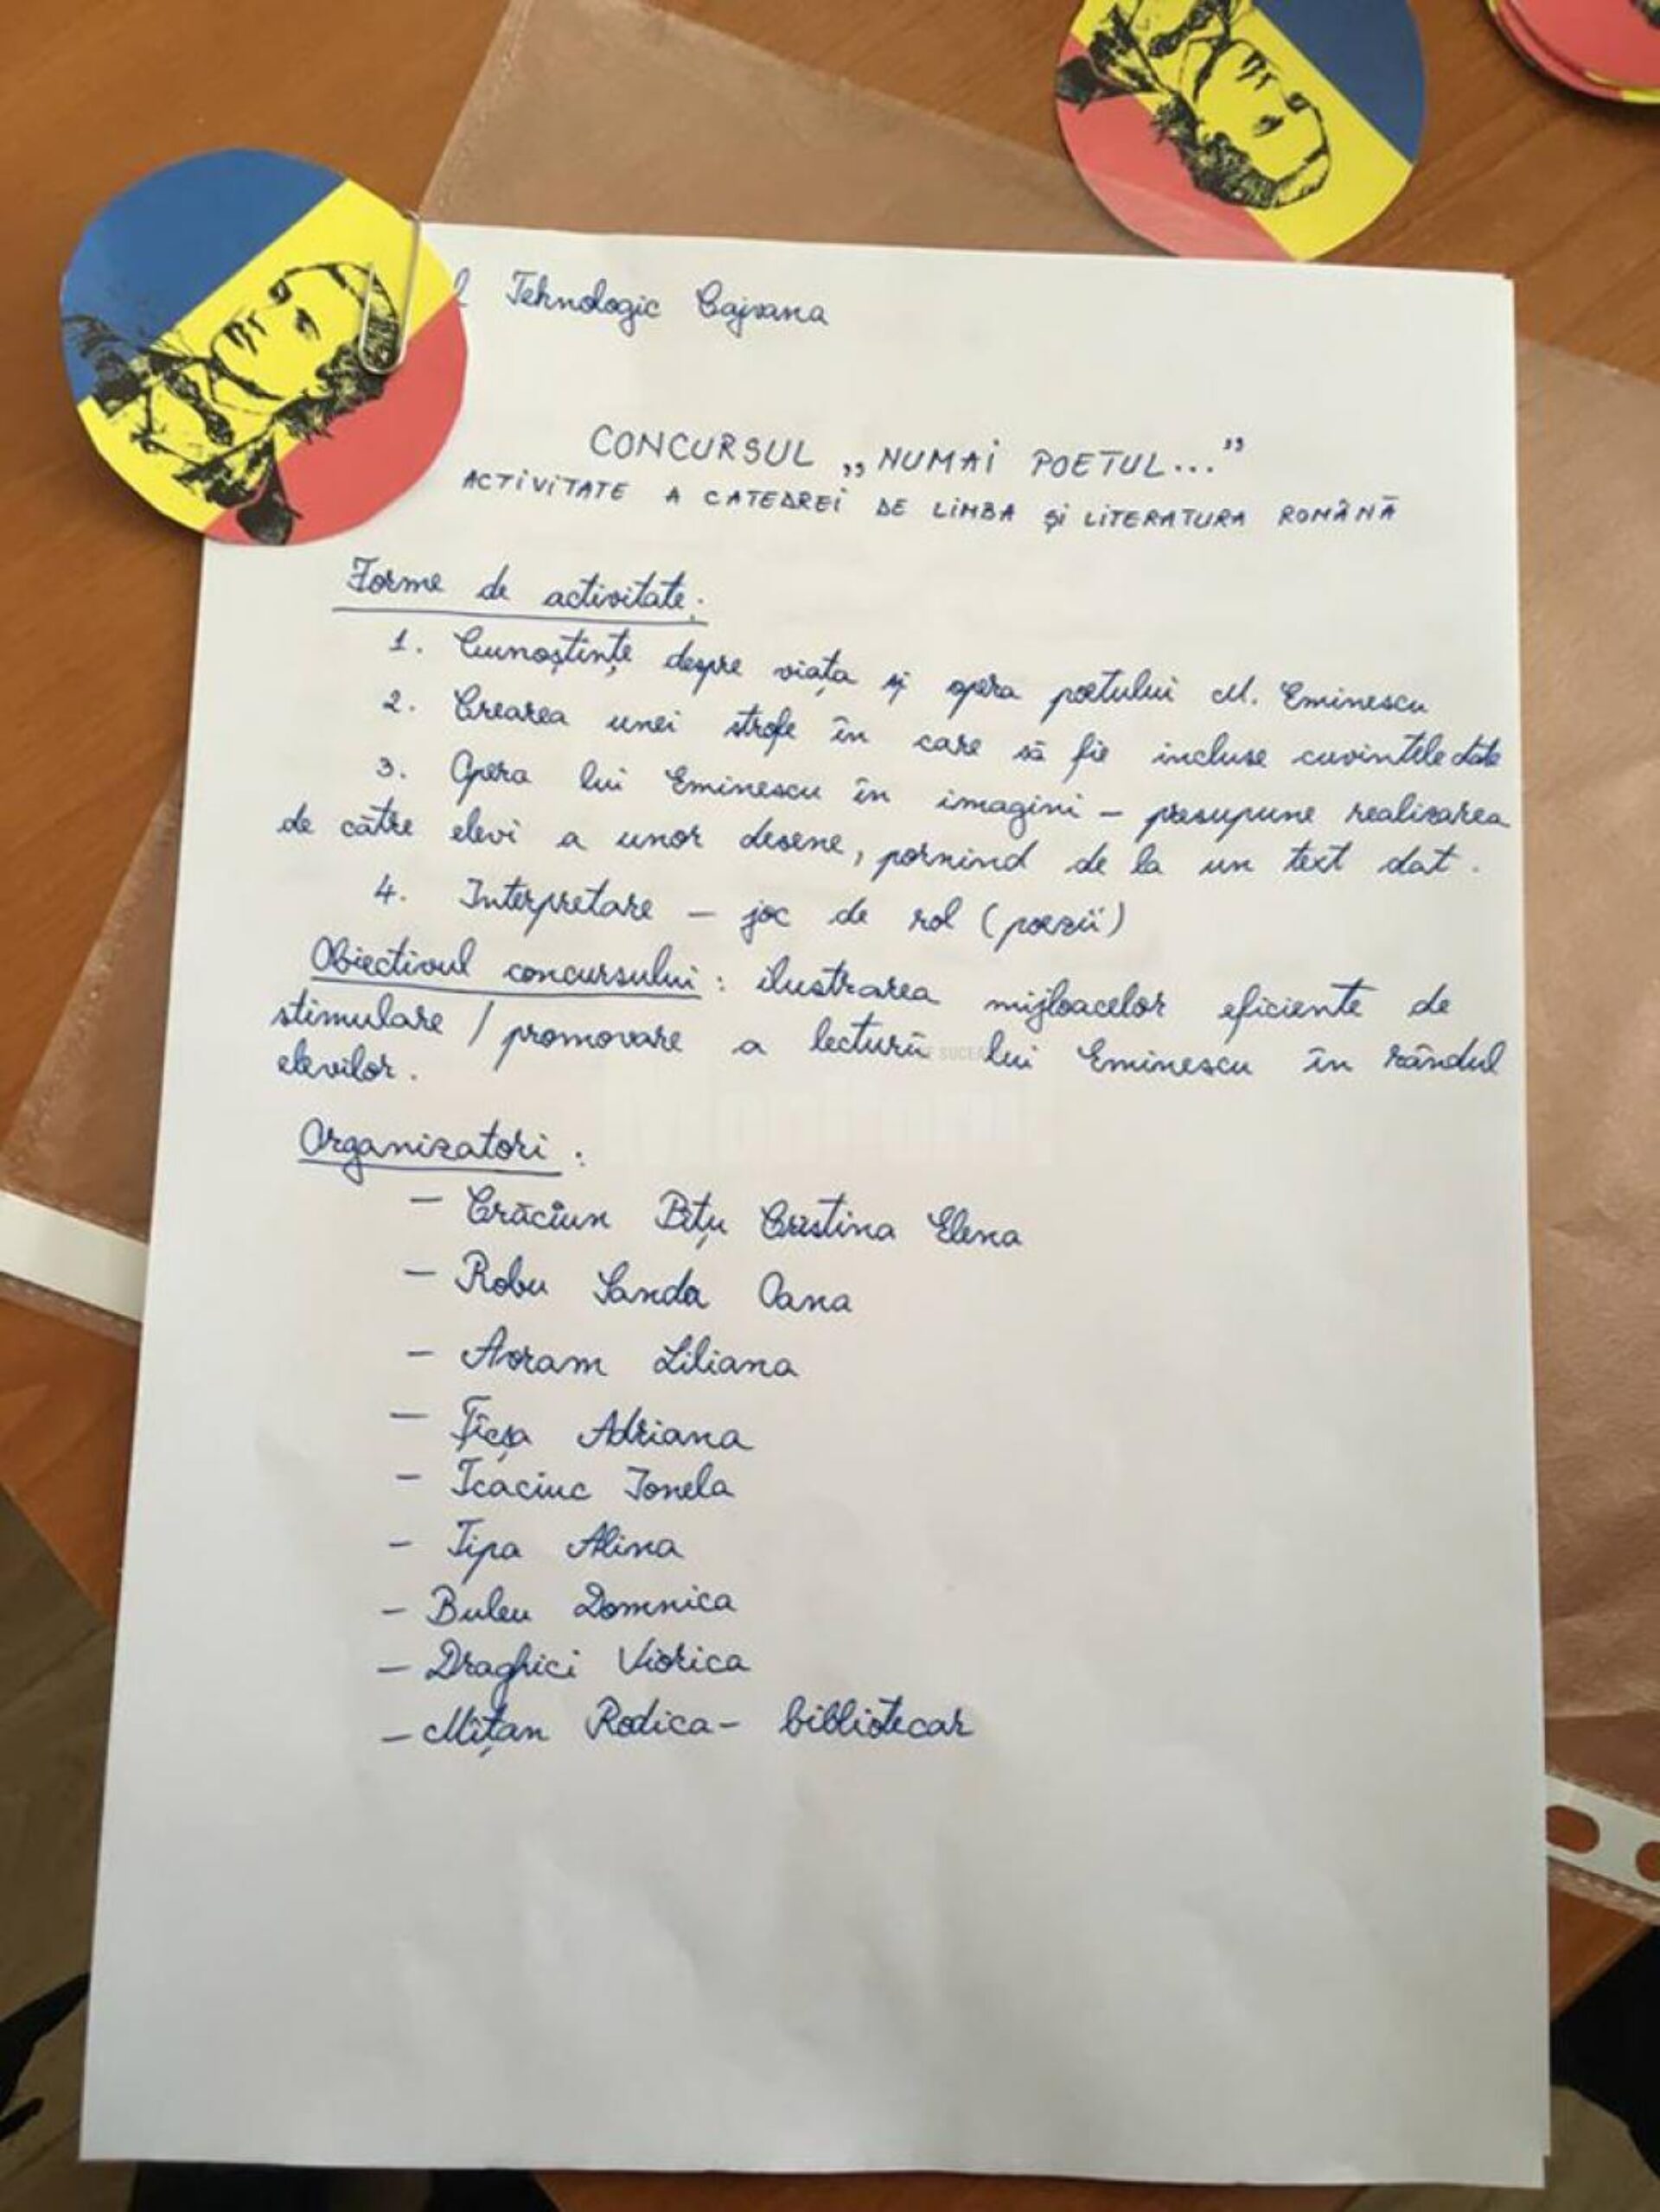 l Tehnologic Cajvana
CONCURSUL „NUMAI POETUL..."
ACTIVITATE A CATEDREI DE LIMBA ȘI LITERATURA ROMÂNĂ
Forme de activitate:
1. Cunoștințe despre viața și opera poetului M. Eminescu
2. Crearea unei strofe în care să fie incluse cuvintele date
3. Opera lui Eminescu în imagini – presupune realizarea
de către elevi a unor desene, pornind de la un text dat.
4. Interpretare – joc de rol (poezii)
Obiectivul concursului: ilustrarea mijloacelor eficiente de
stimulare / promovare a lecturii lui Eminescu în rândul
elevilor.
Organizatori:
– Crăciun Bițu Cristina Elena
– Robu Sanda Oana
– Avram Liliana
– Adriana
– Tcaciuc Ionela
– Tipa Alina
– Buleu Domnica
– Draghici Viorica
– Mițan Rodica – bibliotecar